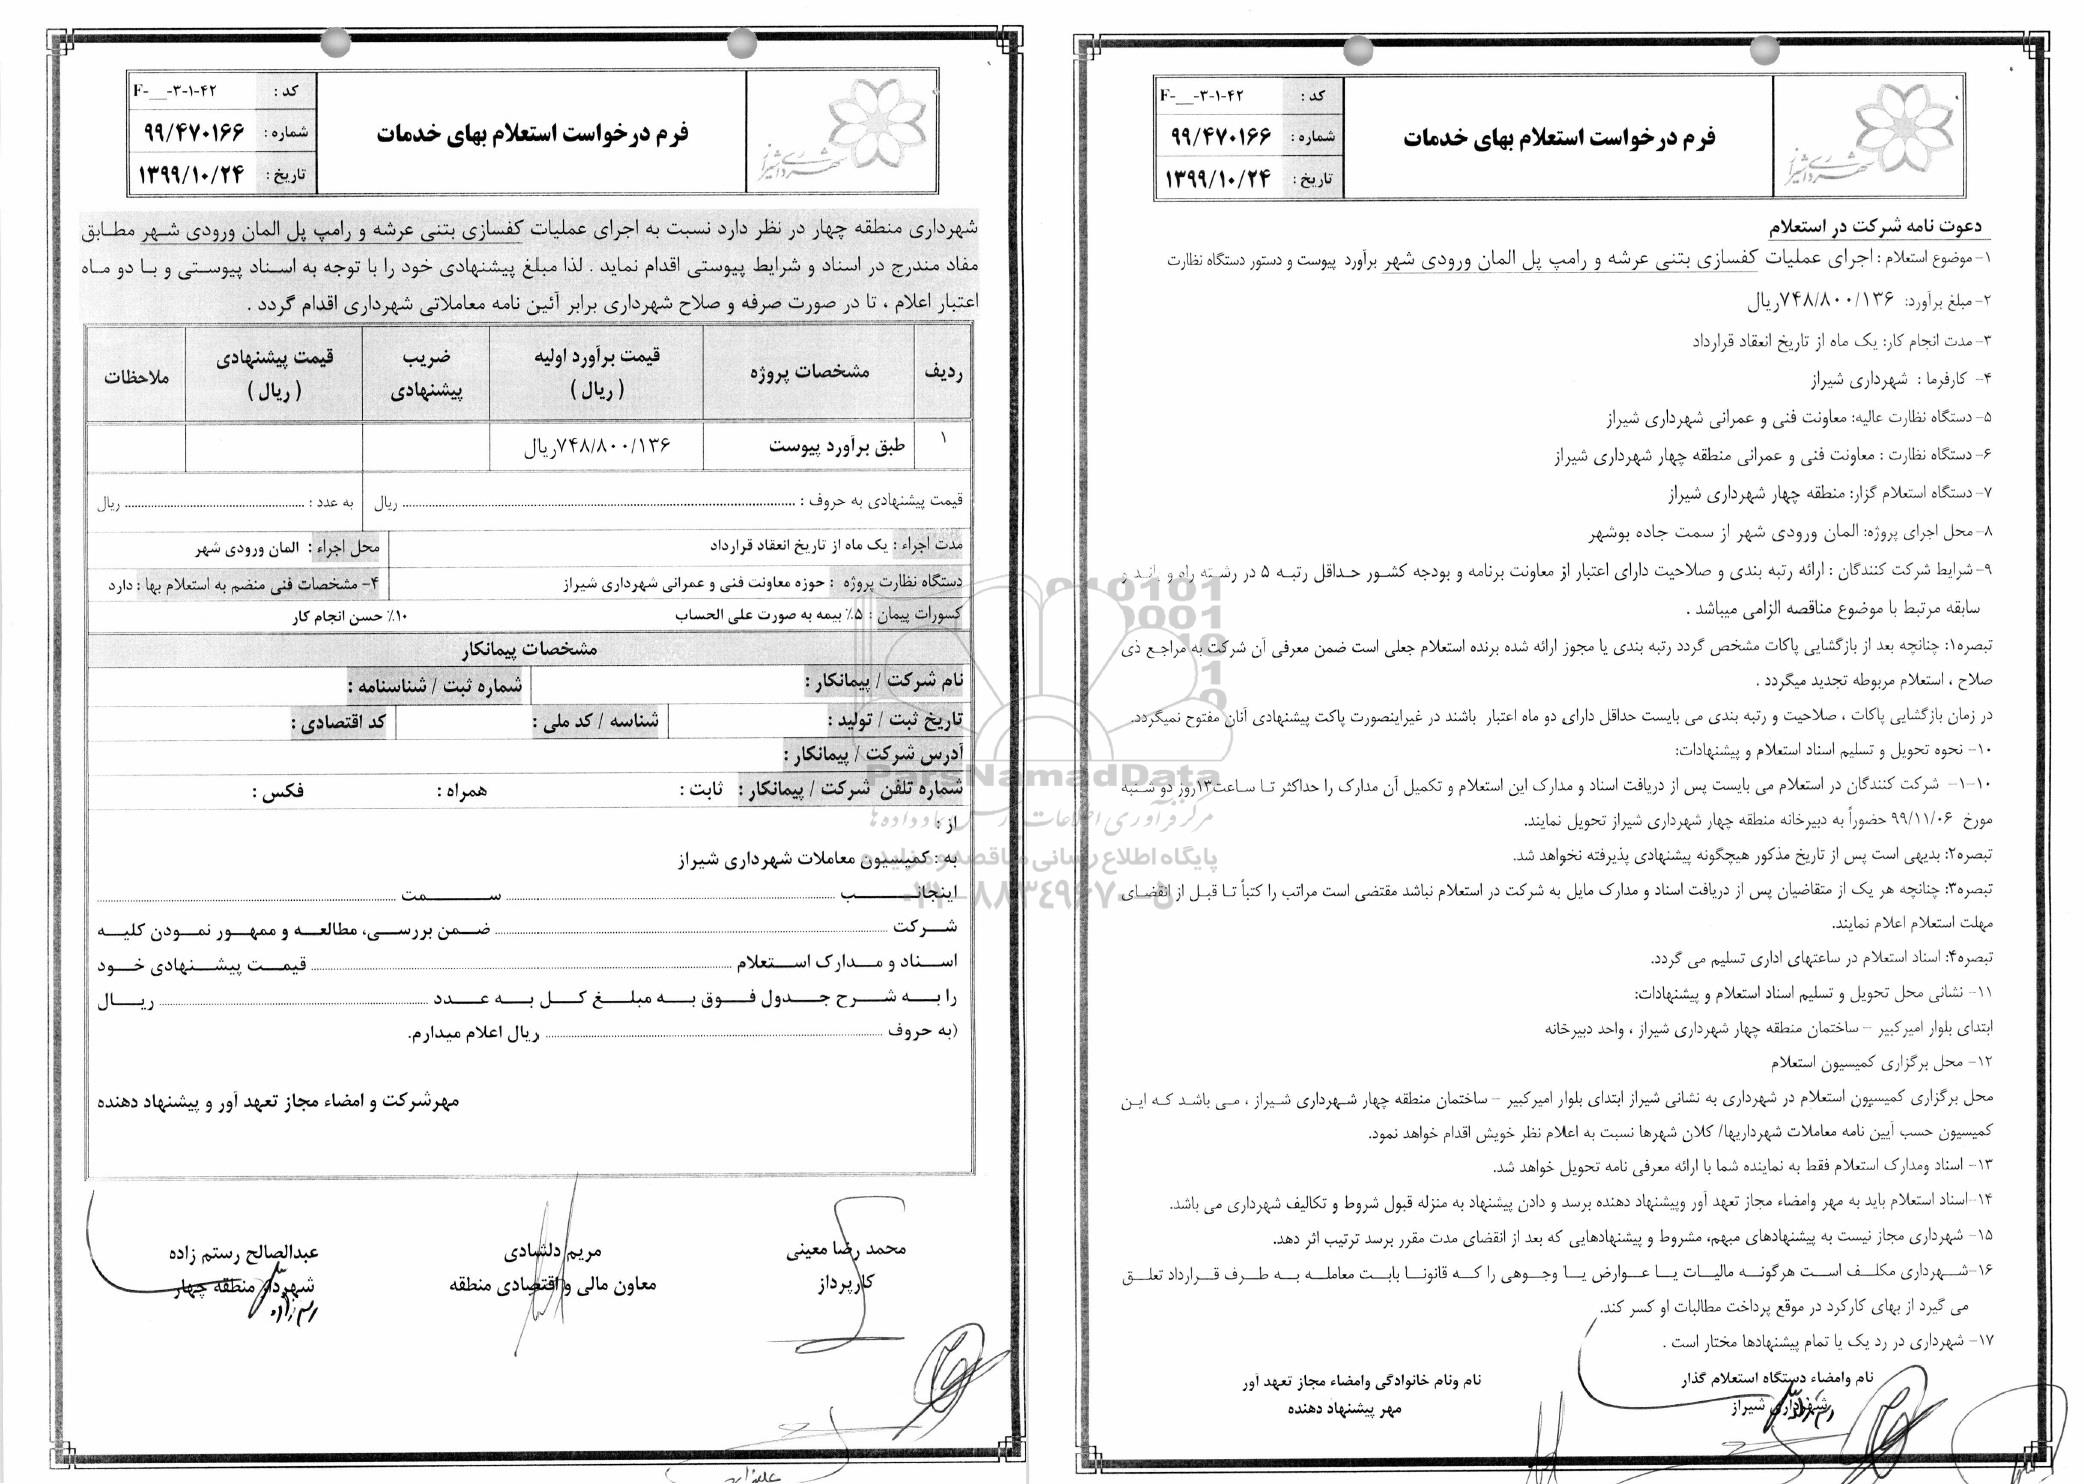 فرم درخواست استعلام بهای خدمات
کد : F-__-۳-۱-۴۲
شماره : ۹۹/۴۷۰۱۶۶
تاریخ : ۱۳۹۹/۱۰/۲۴
دعوت نامه شرکت در استعلام
۱-موضوع استعلام : اجرای عملیات کفسازی بتنی عرشه و رامپ پل المان ورودی شهر برآورد پیوست و دستور دستگاه نظارت
۲-مبلغ برآورد: ۷۴۸/۸۰۰/۱۳۶ریال
۳-مدت انجام کار: یک ماه از تاریخ انعقاد قرارداد
۴- کارفرما : شهرداری شیراز
۵- دستگاه نظارت عالیه: معاونت فنی و عمرانی شهرداری شیراز
۶-دستگاه نظارت : معاونت فنی و عمرانی منطقه چهار شهرداری شیراز
۷- دستگاه استعلام گزار: منطقه چهار شهرداری شیراز
۸-محل اجرای پروژه: المان ورودی شهر از سمت جاده بوشهر
۹-شرایط شرکت کنندگان : ارائه رتبه بندی و صلاحیت دارای اعتبار از معاونت برنامه و بودجه کشور حداقل رتبه ۵ در رشته راه و باند و
سابقه مرتبط با موضوع مناقصه الزامی میباشد .
تبصره۱: چنانچه بعد از بازگشایی پاکات مشخص گردد رتبه بندی یا مجوز ارائه شده برنده استعلام جعلی است ضمن معرفی آن شرکت به مراجع ذی
صلاح ، استعلام مربوطه تجدید میگردد .
در زمان بازگشایی پاکات ، صلاحیت و رتبه بندی می بایست حداقل دارای دو ماه اعتبار باشند در غیراینصورت پاکت پیشنهادی آنان مفتوح نمیگردد.
۱۰- نحوه تحویل و تسلیم اسناد استعلام و پیشنهادات:
۱-۱۰- شرکت کنندگان در استعلام می بایست پس از دریافت اسناد و مدارک این استعلام و تکمیل آن مدارک را حداکثر تا ساعت۱۳روز دو شنبه
مورخ ۹۹/۱۱/۰۶ حضوراً به دبیرخانه منطقه چهار شهرداری شیراز تحویل نمایند.
تبصره۲: بدیهی است پس از تاریخ مذکور هیچگونه پیشنهادی پذیرفته نخواهد شد.
تبصره۳: چنانچه هر یک از متقاضیان پس از دریافت اسناد و مدارک مایل به شرکت در استعلام نباشد مقتضی است مراتب را کتباً تا قبل از انقضای
مهلت استعلام اعلام نمایند.
تبصره۴: اسناد استعلام در ساعتهای اداری تسلیم می گردد.
۱۱- نشانی محل تحویل و تسلیم اسناد استعلام و پیشنهادات:
ابتدای بلوار امیرکبیر – ساختمان منطقه چهار شهرداری شیراز ، واحد دبیرخانه
۱۲- محل برگزاری کمیسیون استعلام
محل برگزاری کمیسیون استعلام در شهرداری به نشانی شیراز ابتدای بلوار امیرکبیر – ساختمان منطقه چهار شهرداری شیراز ، می باشد که این
کمیسیون حسب آیین نامه معاملات شهرداریها/ کلان شهرها نسبت به اعلام نظر خویش اقدام خواهد نمود.
۱۳- اسناد ومدارک استعلام فقط به نماینده شما با ارائه معرفی نامه تحویل خواهد شد.
۱۴-اسناد استعلام باید به مهر وامضاء مجاز تعهد آور وپیشنهاد دهنده برسد و دادن پیشنهاد به منزله قبول شروط و تکالیف شهرداری می باشد.
۱۵- شهرداری مجاز نیست به پیشنهادهای مبهم، مشروط و پیشنهادهایی که بعد از انقضای مدت مقرر برسد ترتیب اثر دهد.
۱۶-شهرداری مکلف است هرگونه مالیات یا عوارض یا وجوهی را که قانونا بابت معامله به طرف قرارداد تعلق
می گیرد از بهای کارکرد در موقع پرداخت مطالبات او کسر کند.
۱۷- شهرداری در رد یک یا تمام پیشنهادها مختار است .
نام وامضاء دستگاه استعلام گذار
شهرداری شیراز
نام ونام خانوادگی وامضاء مجاز تعهد آور
مهر پیشنهاد دهنده
فرم درخواست استعلام بهای خدمات
کد : F-__-۳-۱-۴۲
شماره : ۹۹/۴۷۰۱۶۶
تاریخ : ۱۳۹۹/۱۰/۲۴
شهرداری منطقه چهار در نظر دارد نسبت به اجرای عملیات کفسازی بتنی عرشه و رامپ پل المان ورودی شهر مطابق
مفاد مندرج در اسناد و شرایط پیوستی اقدام نماید . لذا مبلغ پیشنهادی خود را با توجه به اسناد پیوستی و با دو ماه
اعتبار اعلام ، تا در صورت صرفه و صلاح شهرداری برابر آئین نامه معاملاتی شهرداری اقدام گردد .
ردیف | مشخصات پروژه | قیمت برآورد اولیه ( ریال ) | ضریب پیشنهادی | قیمت پیشنهادی ( ریال ) | ملاحظات
۱ | طبق برآورد پیوست | ۷۴۸/۸۰۰/۱۳۶ریال
قیمت پیشنهادی به حروف : ........ ریال به عدد : ........ ریال
مدت اجراء : یک ماه از تاریخ انعقاد قرارداد محل اجراء : المان ورودی شهر
دستگاه نظارت پروژه : حوزه معاونت فنی و عمرانی شهرداری شیراز ۴- مشخصات فنی منضم به استعلام بها : دارد
کسورات پیمان : ۵٪ بیمه به صورت علی الحساب ۱۰٪ حسن انجام کار
مشخصات پیمانکار
نام شرکت / پیمانکار : شماره ثبت / شناسنامه :
تاریخ ثبت / تولید : شناسه / کد ملی : کد اقتصادی :
آدرس شرکت / پیمانکار :
شماره تلفن شرکت / پیمانکار : ثابت : همراه : فکس :
از :
به : کمیسیون معاملات شهرداری شیراز
اینجانب ........ سمت ........
شرکت ........ ضمن بررسی، مطالعه و ممهور نمودن کلیه
اسناد و مدارک استعلام ........ قیمت پیشنهادی خود
را به شرح جدول فوق به مبلغ کل به عدد ........ ریال
(به حروف ........ ریال اعلام میدارم.
مهرشرکت و امضاء مجاز تعهد آور و پیشنهاد دهنده
محمد رضا معینی
کارپرداز
مریم دلشادی
معاون مالی و اقتصادی منطقه
عبدالصالح رستم زاده
شهردار منطقه چهار
ParsNamadData
پایگاه اطلاع رسانی مناقصه و مزایده
۰۲۱-۸۸۳۴۹۶۷۰-۵